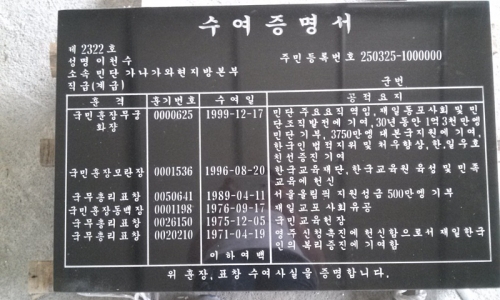 수여증명서
제 2322 호
성명 이천수 주민등록번호 250325-1000000
소속 민단 가나가와현지방본부
직급(계급) 군번
훈격 훈기번호 수여일 공적요지
국민훈장무궁화장 0000625 1999-12-17 민단 주요요직역임, 재일동포사회 및 민
단조직발전에 기여, 30년동안 1억3천만엥
민단 기부, 3750만엥 대본국지원에 기여,
한국인 법적지위 및 처우향상, 한일우호
친선증진 기여
국민훈장모란장 0001536 1996-08-20 한국교육재단, 한국교육원 육성 및 민족
교육에 헌신
국무총리표창 0050641 1989-04-11 서울올림픽 지원성금 500만엥 기부
국민훈장동백장 0001198 1976-09-17 재일교포 사회유공
국무총리표창 0026150 1975-12-05 국민교육헌장
국무총리표창 0020210 1971-04-19 영주신청촉진에 헌신함으로서 재일한국
인의 복리증진에 기여함
이하여백
위 훈장, 표창 수여사실을 증명합니다.